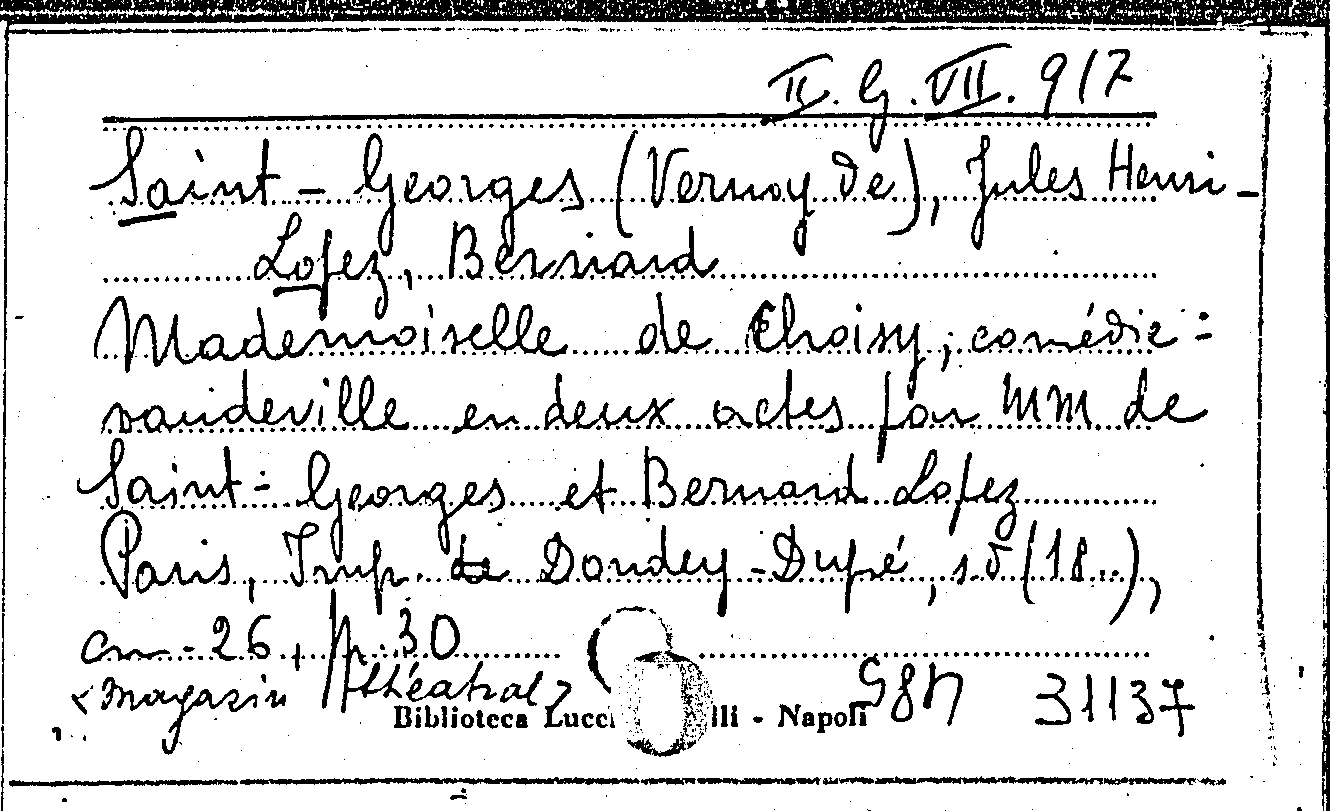 II. G. VII. 917
Saint-Georges (Vernoy de), Jules Henri-
Lopez, Bernard
Mademoiselle de Choisy; comédie-
vaudeville en deux actes par MM de
Saint-Georges et Bernard Lopez
Paris, Imp. de Dondey-Dupé, s.d (18..),
cm. 26, p. 30
<Magasin théatral>
Biblioteca Lucc lli - Napoli
31137